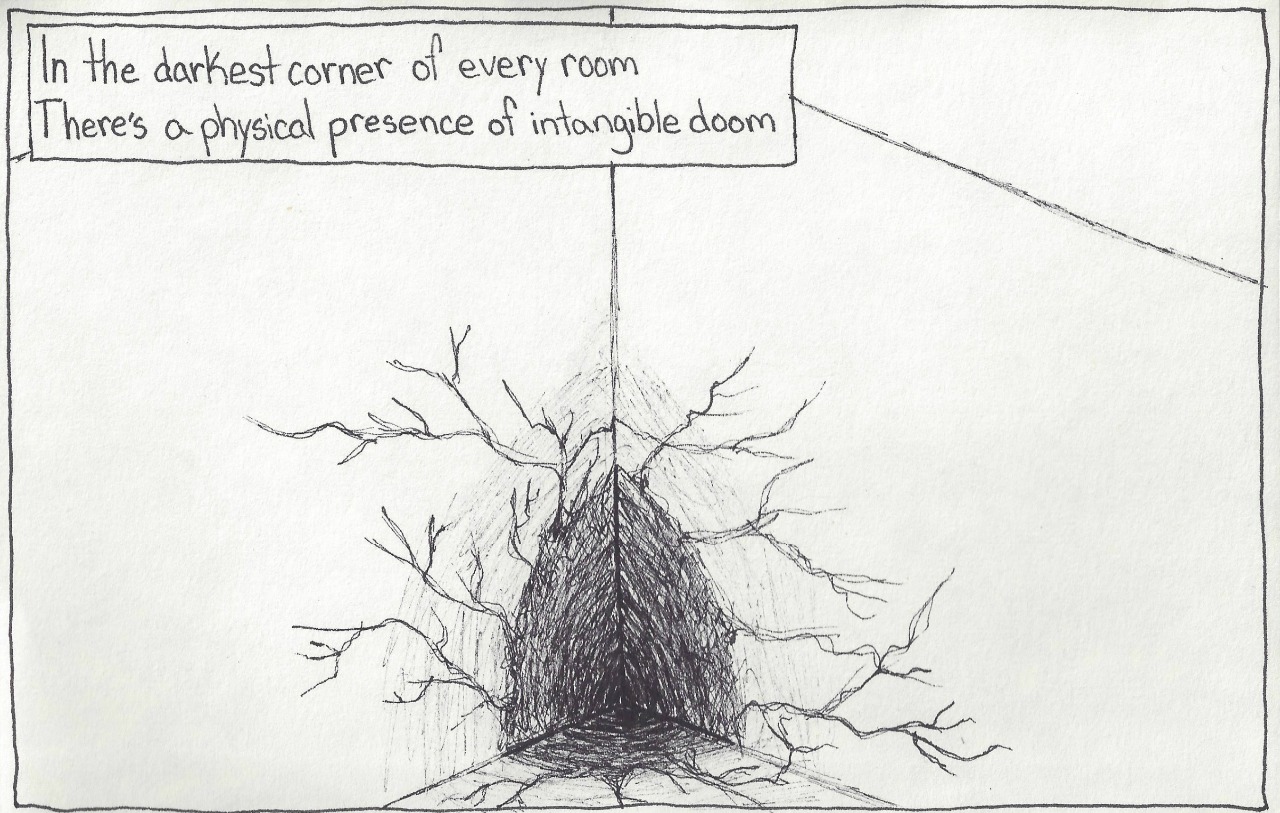 In the darkest corner of every room
There's a physical presence of intangible doom